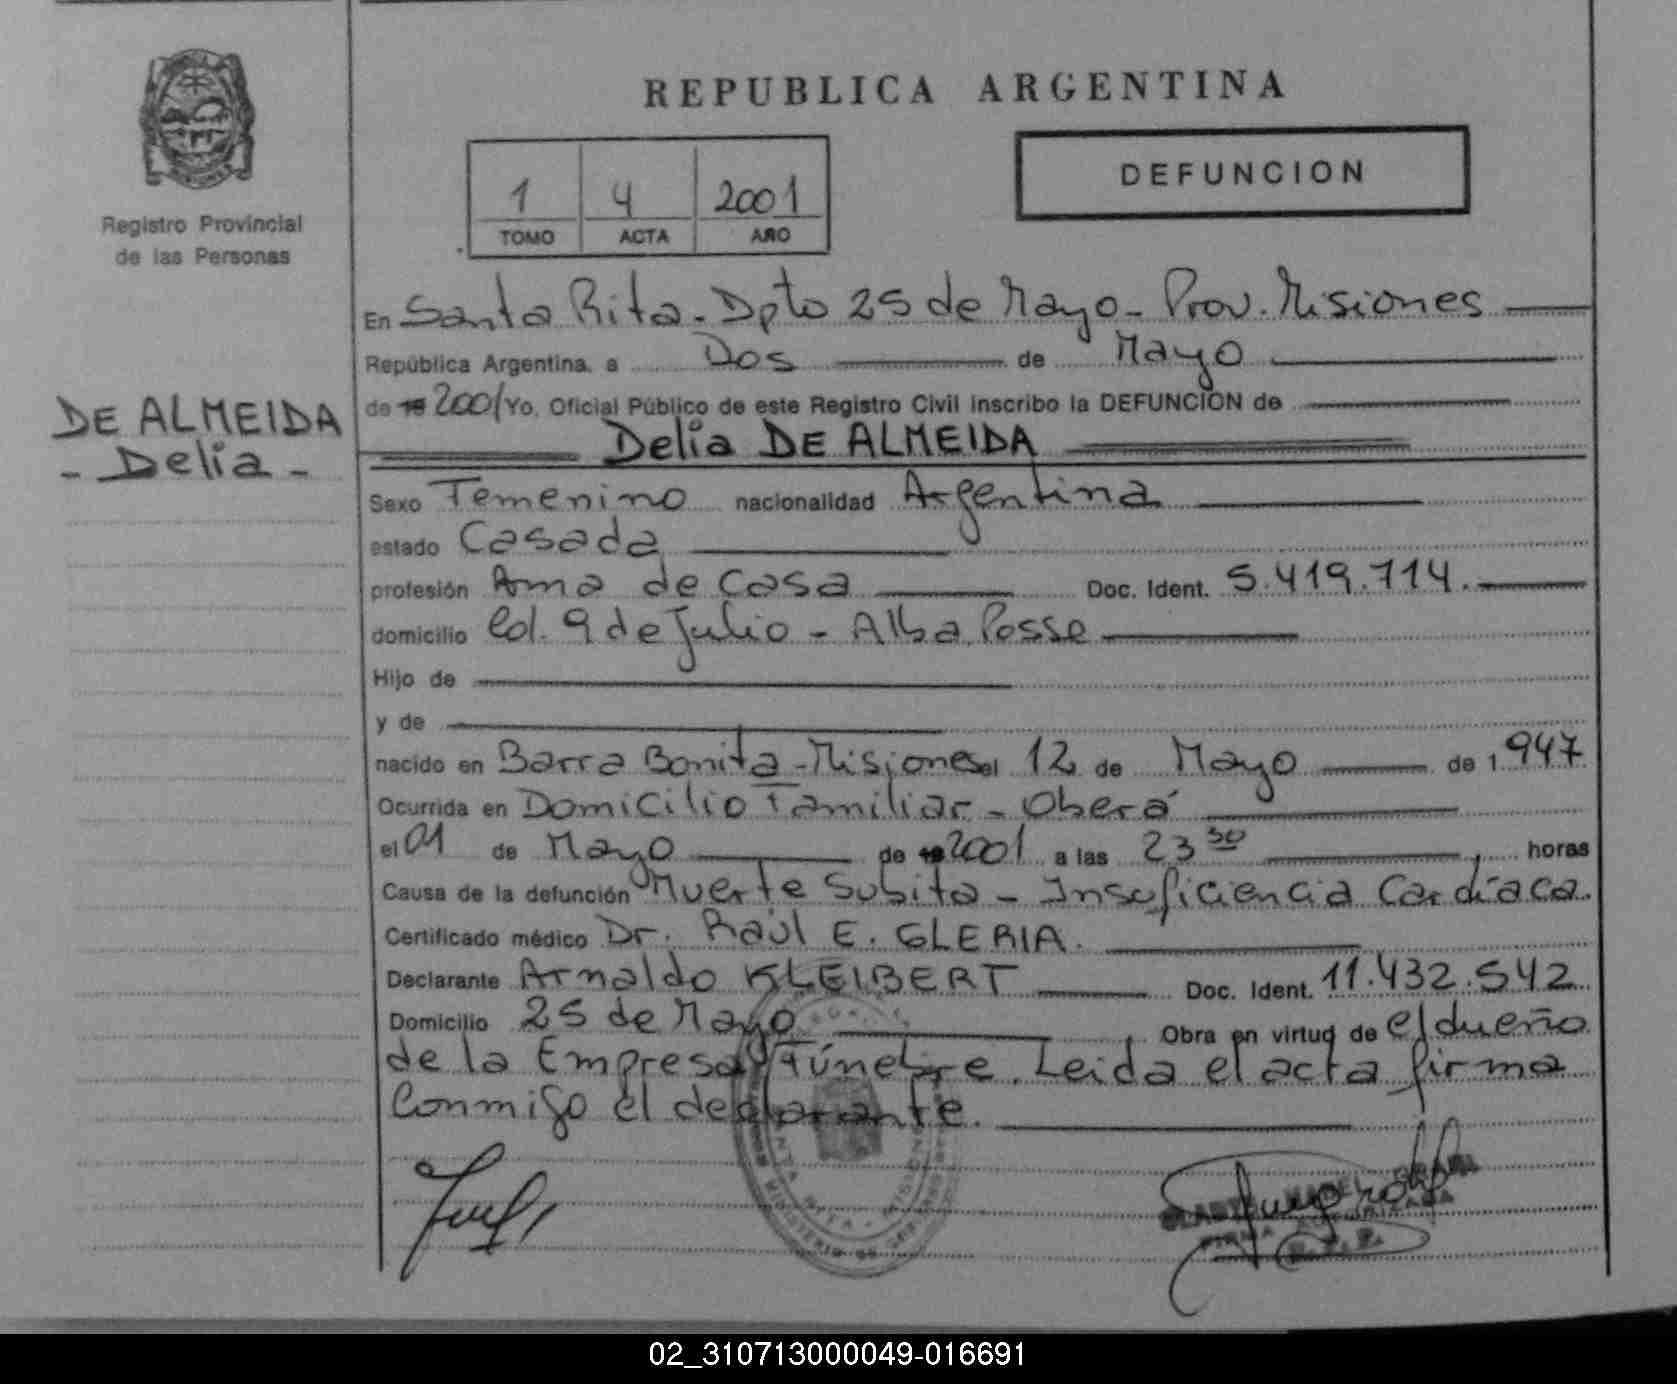 REPUBLICA ARGENTINA
DEFUNCION
1 4 2001
TOMO ACTA AÑO
Registro Provincial
de las Personas
DE ALMEIDA
- Delia -
En Santa Rita - Dpto 25 de Mayo - Prov. Misiones
República Argentina, a Dos de Mayo
de 19 2001 Yo, Oficial Público de este Registro Civil inscribo la DEFUNCION de
Delia DE ALMEIDA
Sexo Femenino nacionalidad Argentina
estado Casada
profesión Ama de Casa Doc. Ident. 5.419.714.
domicilio Col. 9 de Julio - Alba Posse
Hijo de
y de
nacido en Barra Bonita - Misiones el 12 de Mayo de 1947
Ocurrida en Domicilio Familiar - Oberá
el 01 de Mayo de 19 2001 a las 23 30 horas
Causa de la defunción Muerte Subita - Insuficiencia Cardíaca.
Certificado médico Dr. Raúl E. GLERIA.
Declarante Arnaldo KLEIBERT Doc. Ident. 11.432.542
Domicilio 25 de Mayo Obra en virtud de el dueño
de la Empresa Fúnebre. Leida el acta firma
Conmigo el declarante.
02_310713000049-016691